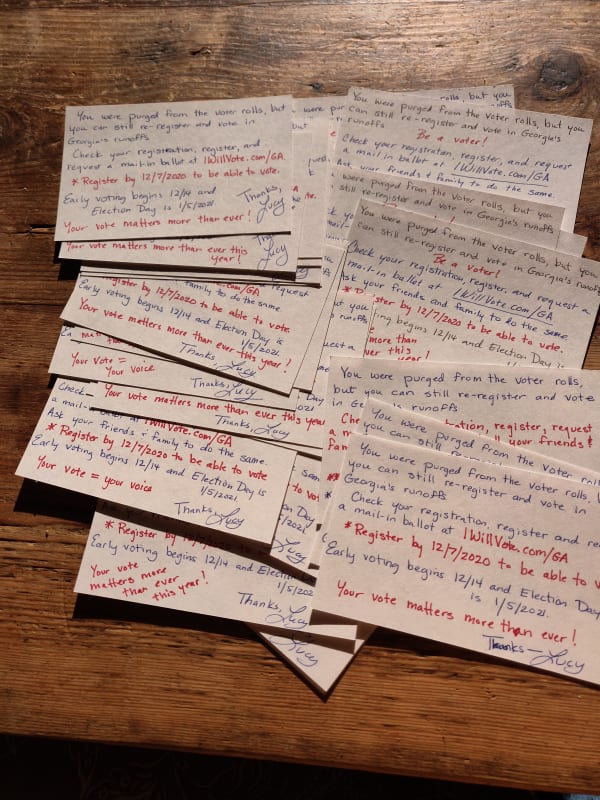 You were purged from the voter rolls, but
you can still re-register and vote in
Georgia's runoffs
Check your registration, register, and
request a mail-in ballot at IWillVote.com/GA
* Register by 12/7/2020 to be able to vote.
Early voting begins 12/14 and
Election Day is 1/5/2021.
Your vote matters more than ever!
Thanks,
Lucy
Your vote matters more than ever this
year!
Lucy
Register by 12/7/2020 to be able to vote
Early voting begins 12/14 and Election Day is
1/5/2021.
Your vote matters more than ever this year!
Thanks, Lucy
Your vote =
Your voice
Thanks, Lucy
Your vote matters more than ever this year
Thanks, Lucy
Check
ballot at IWillVote.com/GA
Ask your friends & family to do the same.
* Register by 12/7/2020 to be able to vote
Early voting begins 12/14 and Election Day is
1/5/2021
Your vote = your voice
Thanks, Lucy
* Register by 12/7/
Early voting begins 12/14 and Election
1/5/2021
Your vote
matters more
than ever
this year!
Thanks, Lucy
Lucy
You were purged from the voter rolls, but you
can still re-register and vote in Georgia's
runoffs
Be a voter!
Check your registration, register, and request
a mail-in ballot at IWillVote.com/GA
Ask your friends & family to do the same.
were purged from the voter rolls, but you
still re-register and vote in Georgia's
You were purged from the voter rolls, but you
can still re-register and vote in Georgia's runoffs
Be a voter!
Check your registration, register, and request a
mail-in ballot at IWillVote.com/GA
Ask your friends and family to do the same
Register by 12/7/2020 to be able to vote.
voting begins 12/14 and Election Day is
more than
this
You were purged from the voter rolls,
but you can still re-register and vote
in Georgia's runoffs
registration, register, request
your friends &
You were purged from the voter
you can still re-register
You were purged from the voter rolls,
you can still re-register and vote in
Georgia's runoffs
Check your registration, register and re
a mail-in ballot at IWillVote.com/GA
* Register by 12/7/2020 to be able to v
Early voting begins 12/14 and Election Day
is 1/5/2021.
Your vote matters more than ever!
Thanks—Lucy